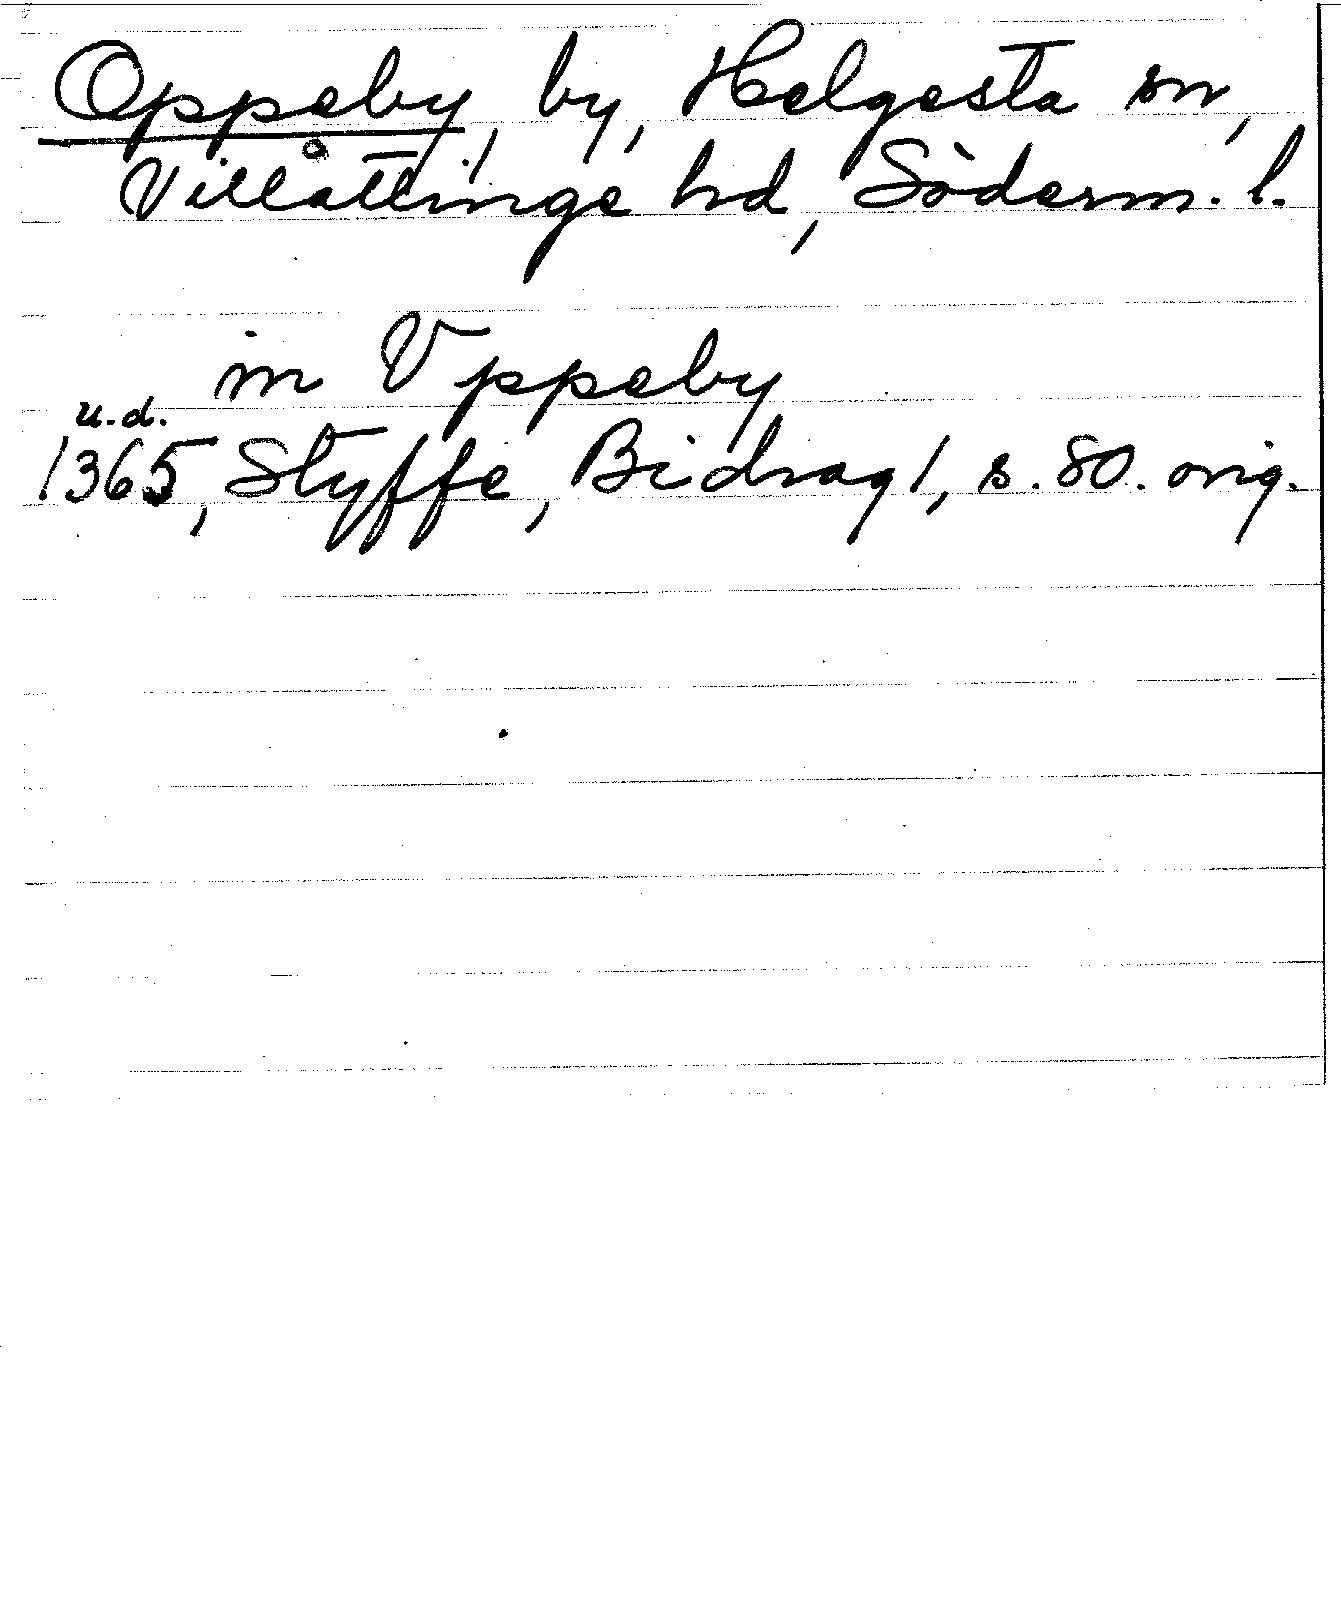 Oppeby, by, Helgesta sn,
Villåttinge hd, Söderm. l.
in Vppeby
u.d.
1365, Styffe, Bidrag 1, s. 80. orig.